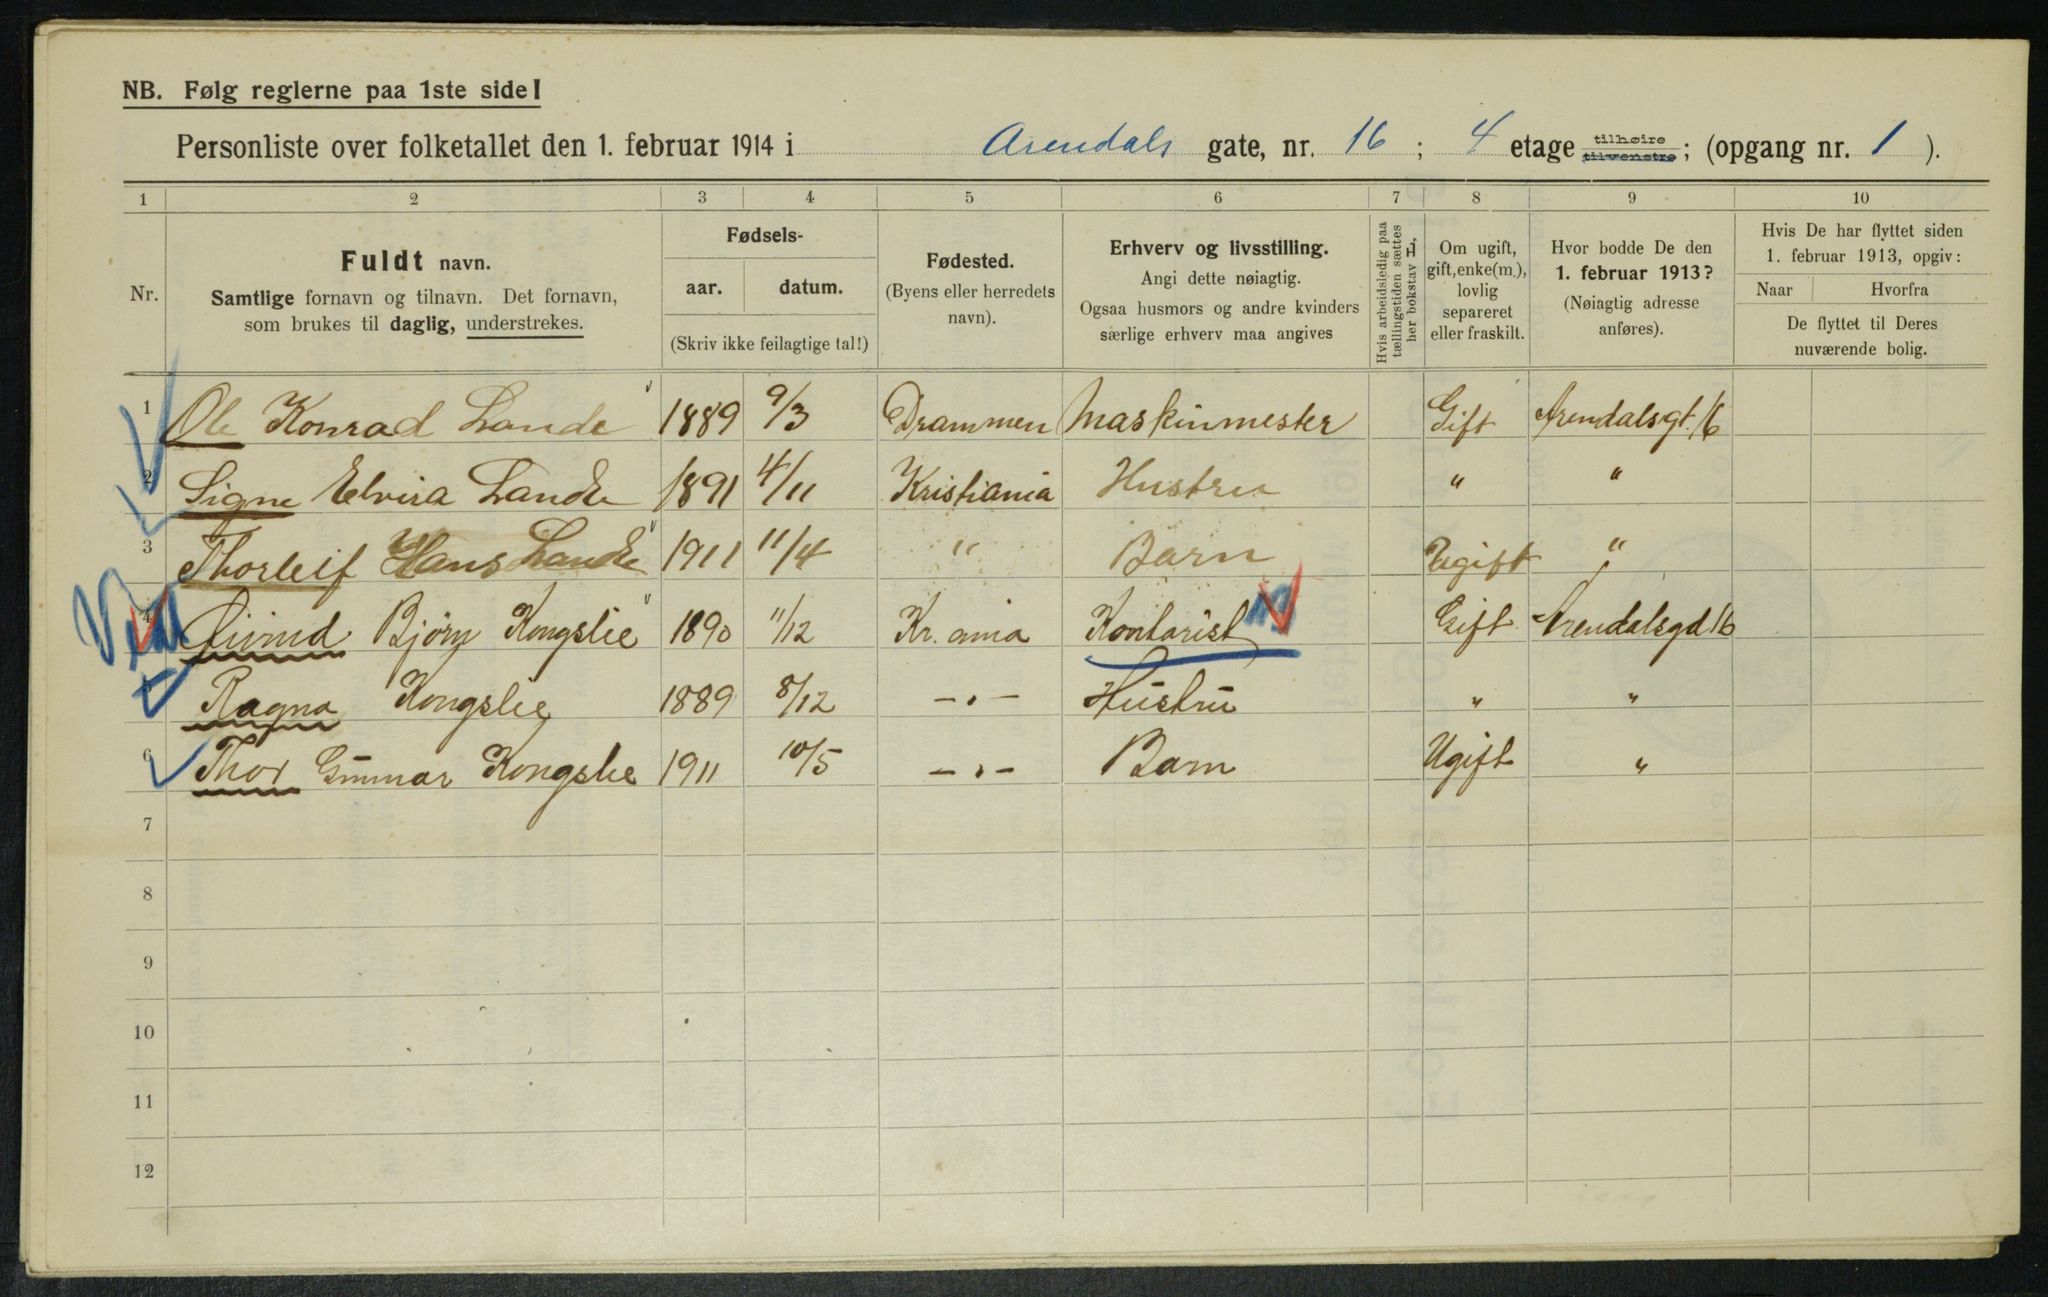 NB. Følg reglerne paa 1ste side!
Personliste over folketallet den 1. februar 1914 i Arendals gate, nr. 16 ; 4 etage tilhøire tilvenstre ; (opgang nr. 1 ).
1 2 3 4 5 6 7 8 9 10
Nr.
Fuldt navn.
Samtlige fornavn og tilnavn. Det fornavn,
som brukes til daglig, understrekes.
Fødsels-
aar. datum.
(Skriv ikke feilagtige tal!)
Fødested.
(Byens eller herredets
navn).
Erhverv og livsstilling.
Angi dette nøiagtig.
Ogsaa husmors og andre kvinders
særlige erhverv maa angives
Hvis arbeidsledig paa
tællingstiden sættes
her bokstav L,
Om ugift,
gift, enke(m.),
lovlig
separeret
eller fraskilt.
Hvor bodde De den
1. februar 1913?
(Nøiagtig adresse
anføres).
Hvis De har flyttet siden
1. februar 1913, opgiv:
Naar Hvorfra
De flyttet til Deres
nuværende bolig.
1 Ole Konrad Lande 1889 9/3 Drammen Maskinmester Gift Arendalsgt. 16
2 Signe Elvira Lande 1891 4/11 Kristiania Hustru " "
3 Thorleif Hans Lande 1911 11/4 " Barn Ugift "
4 Øivind Bjørn Kongslie 1890 11/12 Kr.ania Kontorist Gift Arendalsgd 16
5 Ragna Kongslie 1889 8/12 -"- Hustru " "
6 Thor Gunnar Kongslie 1911 10/5 -"- Barn Ugift "
7
8
9
10
11
12